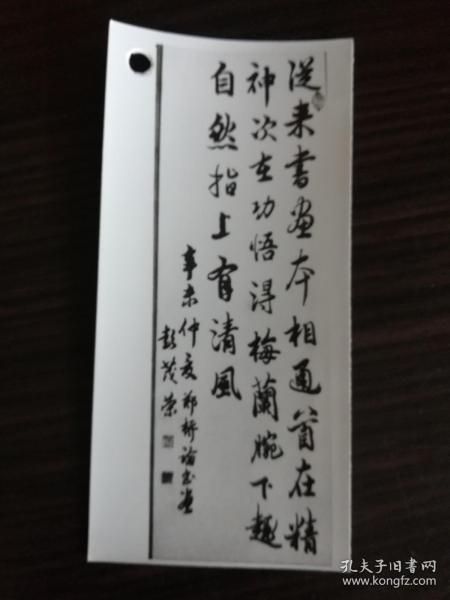 従来書画本相通首在精
神次在功悟得梅蘭腕下趣
自然指上有清風
辛未仲夏郑板论书画
彭茂荣
孔夫子旧书网
www.kongfz.com